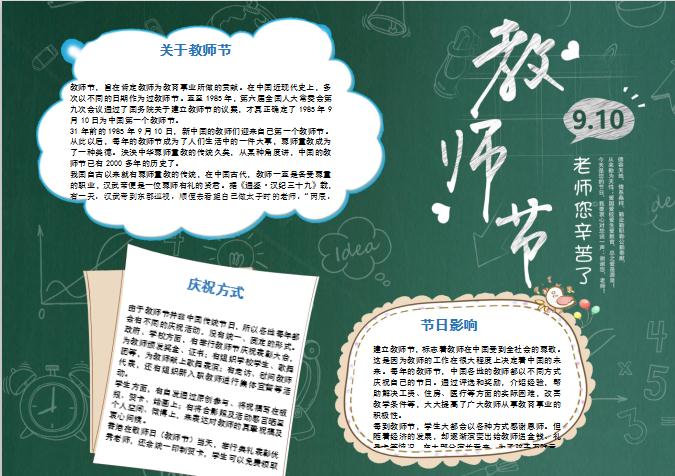 关于教师节
教师节，旨在肯定教师为教育事业所做的贡献。在中国近现代史上，多
次以不同的日期作为过教师节。直至 1985 年，第六届全国人大常委会第
九次会议通过了国务院关于建立教师节的议案，才真正确定了 1985 年 9
月 10 日为中国第一个教师节。
31 年前的 1985 年 9 月 10 日，新中国的教师们迎来自己第一个教师节。
从此以后，每年的教师节成为了人们生活中的一件大事，尊师重教成为
了一种美德。泱泱中华尊师重教的传统久矣，从某种角度讲，中国的教
师节已有 2000 多年的历史了。
我国自古以来就有尊师重教的传统，在中国古代，教师一直是备受尊重
的职业，汉武帝便是一位尊师有礼的贤君。据《通鉴·汉纪三十九》载，
教师节
9.10
老师您辛苦了
Idea
庆祝方式
由于教师节并非中国传统节日，所以各地每年都
会有不同的庆祝活动，没有统一、固定的形式。
政府、学校方面，有举行教师节庆祝表彰大会，
为教师颁发奖金、证书；有组织学校学生、歌舞
团等，为教师献上歌舞表演；有走访、慰问教师
代表，还有组织新入职教师进行集体宣誓等活
动。
学生方面，有自发通过原创参与、将祝福写在海
报、贺卡、绘画上；有将合影照及活动感言晒至
个人空间、微博上，来表达对教师的真挚祝福及
衷心问候。
香港在教师日（教师节）当天，举行典礼表彰优
秀老师，还会统一印制贺卡，学生可以免费领取
节日影响
建立教师节，标志着教师在中国受到全社会的尊敬。
这是因为教师的工作在很大程度上决定着中国的未
来。每年的教师节，中国各地的教师都以不同方式
庆祝自己的节日。通过评选和奖励，介绍经验，帮
助解决工资、住房、医疗等方面的实际困难，改善
教学条件等，大大提高了广大教师从事教育事业的
积极性。
每到教师节，学生大都会以各种方式感谢恩师。但
随着经济的发展，却逐渐演变出给教师送金钱、礼